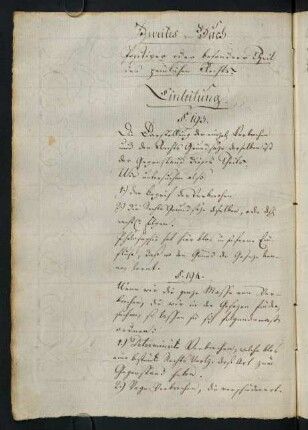 Zweites Buch
Positiver oder besonderer Theil
des peinlichen Rechts.
Einleitung.
§ 193.
Die Darstellung der einzeln Verbrechen
und der Rechts Grundsätze derselben ist
der Gegenstand dieses Theils.
Wir untersuchen also:
1) den Begriff des Verbrechens
2) die Rechts Grundsätze desselben, oder die
rechtl. Folgen.
Philosophie hat hier blos in so ferne Ein-
fluß, daß man den Grund der Gesetze
kennen lernt.
§. 194.
Wenn wir die ganze Masse von Ver-
brechen, die wir in den Gesetzen finden,
so lassen sie sich folgendermaßen
ordnen:
1) Determinirte Verbrechen, welche blos
eine bestimte Rechts Verletz. dieser Art zum
Gegenstand haben.
2) Vage Verbrechen, die verschiedene